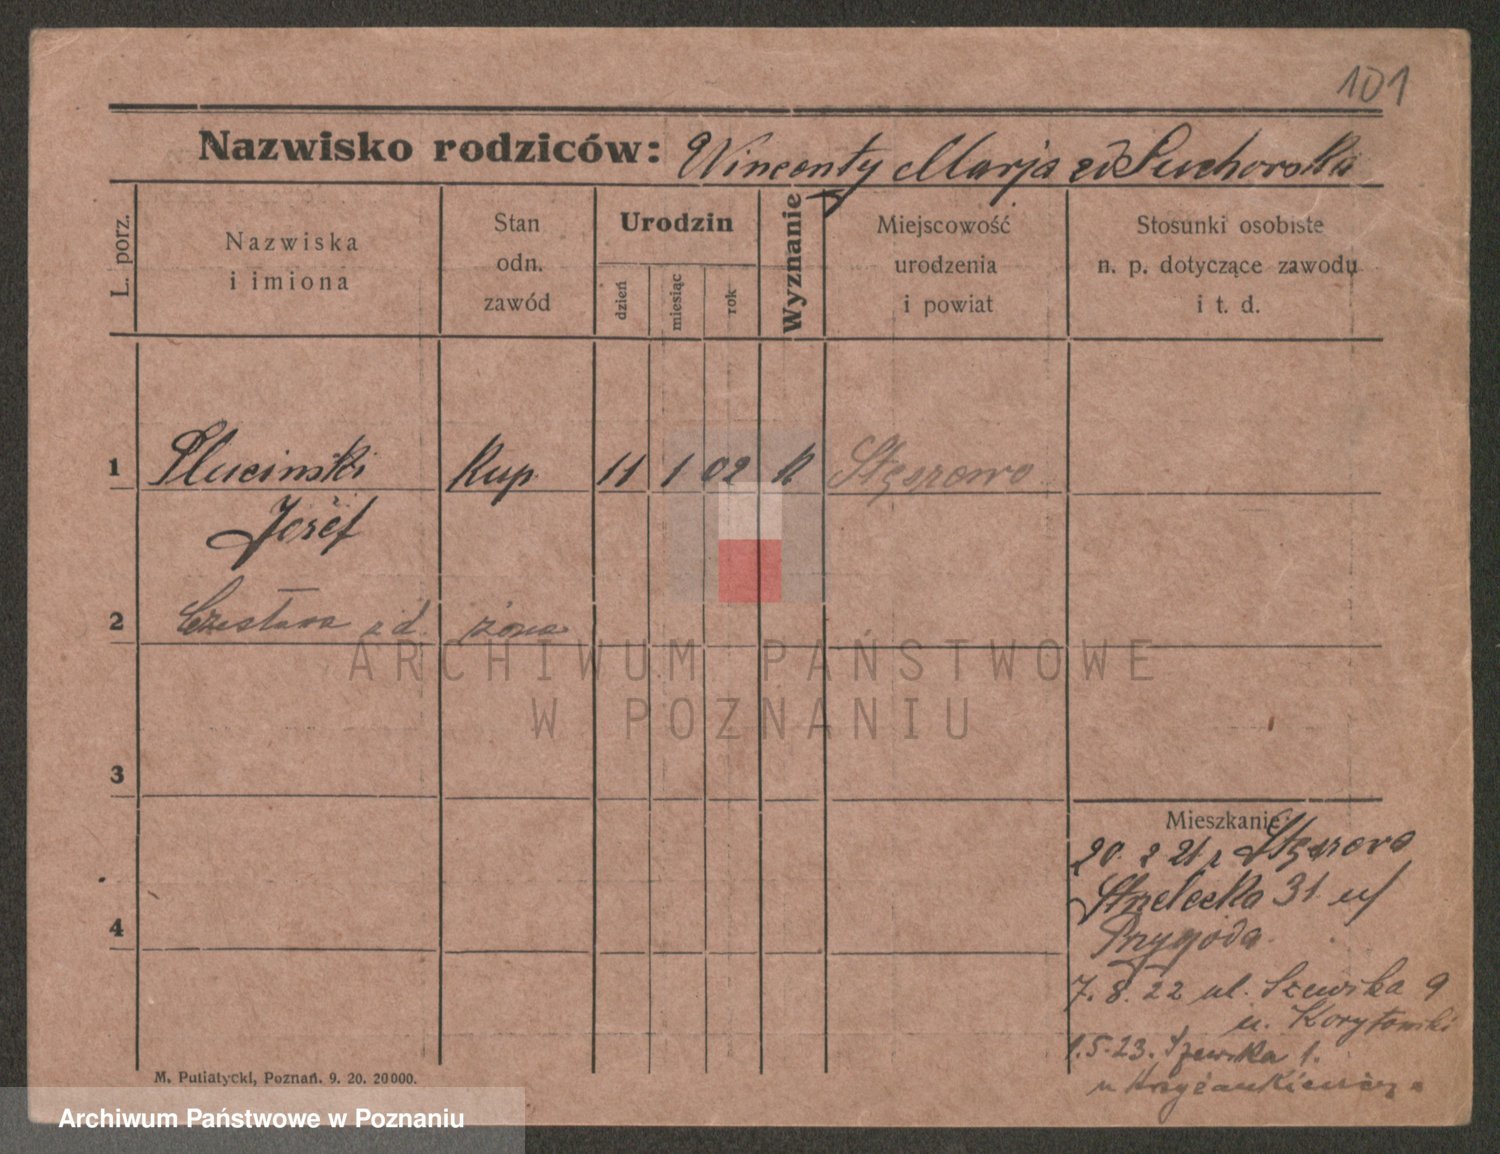 101
Nazwisko rodziców: Wincenty Marja zd Suchorska
L. porz.
Nazwiska
i imiona
Stan
odn.
zawód
Urodzin
dzień
miesiąc
rok
Wyznanie
Miejscowość
urodzenia
i powiat
Stosunki osobiste
n. p. dotyczące zawodu
i t. d.
1 Plucinski Kup. 11 1 02 K
Józef
2 Czesława zd żona
ARCHIWUM PAŃSTWOWE
W POZNANIU
3
Mieszkanie:
20. 2 21 z
Strzelecka 31
4
Przygoda
7. 8. 22 ul. Szewska 9
u. Korytowski
1.5.23. Szewska 1.
M. Putiatycki, Poznań. 9. 20. 20000.
Archiwum Państwowe w Poznaniu